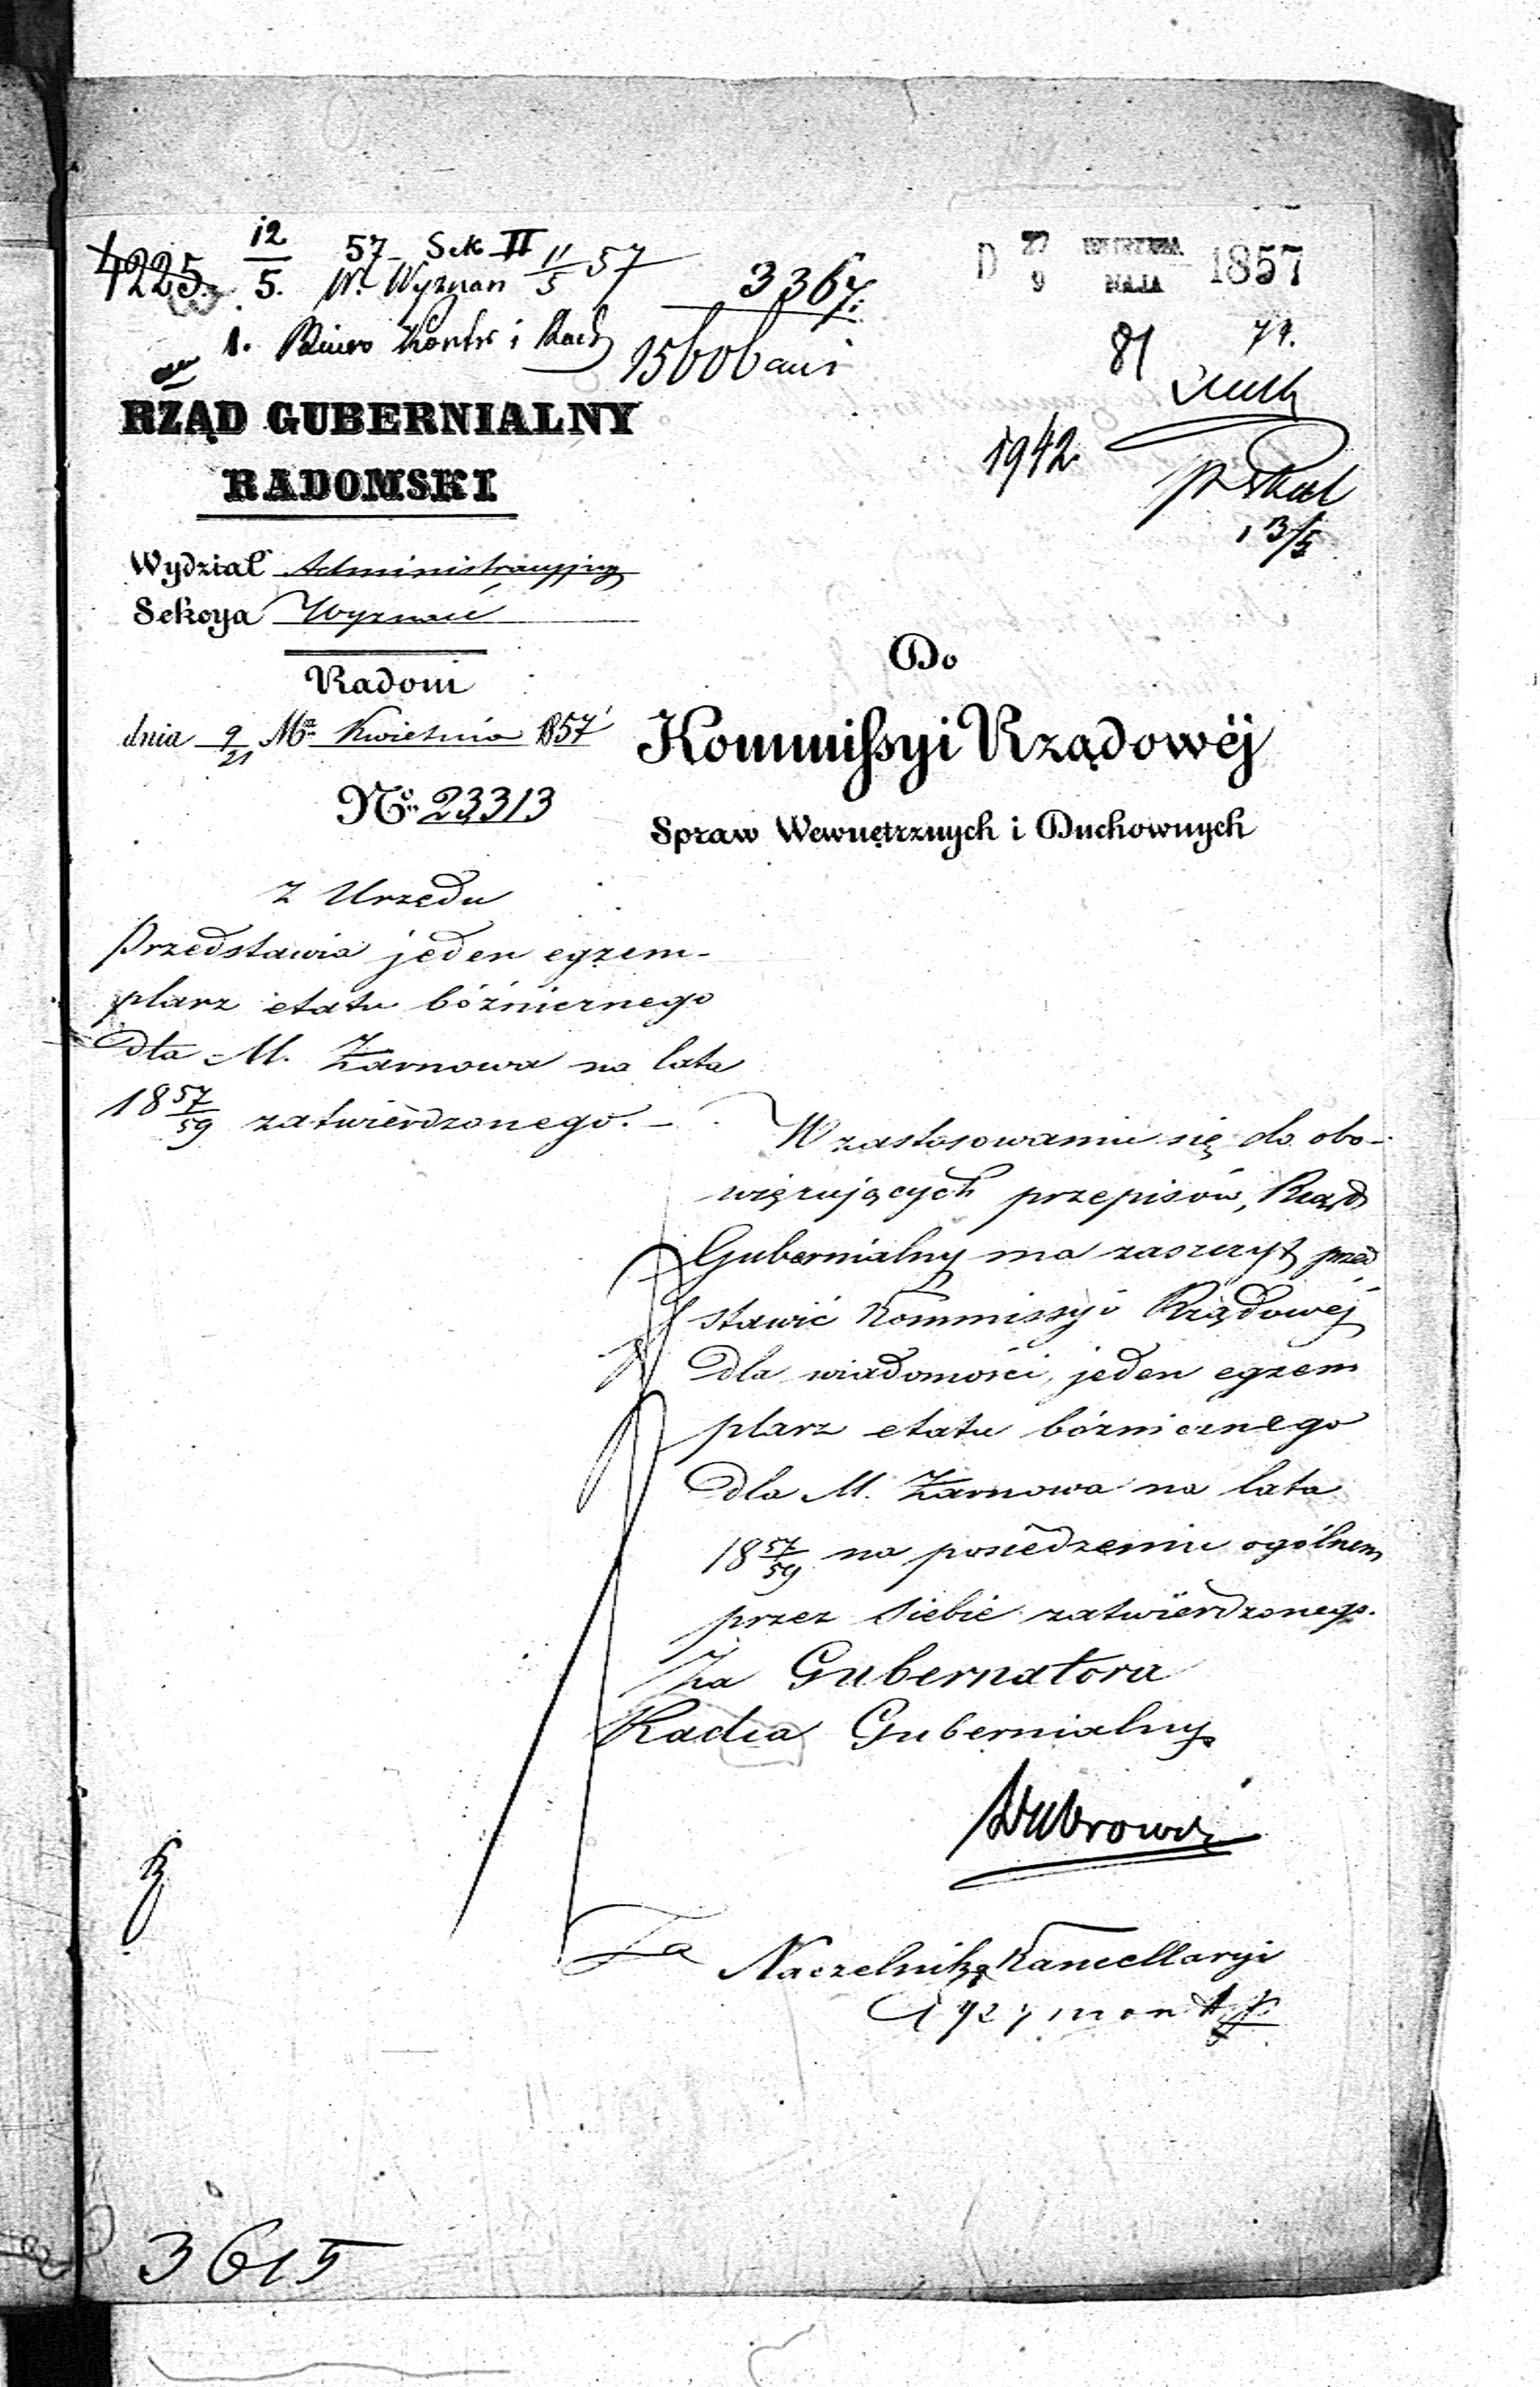 4225. 12/5. 57 Sek II
W. Wyznań 11/5 57
3367.
D 27/9 KWIETNIA/MAJA 1857
1. Biuro Kontr i Rach
81
1942.
13/5
RZĄD GUBERNIALNY
RADOMSKI
Wydział Administracyjny
Sekcya Wyznań
Radom
dnia 9/21 Mca Kwietnia 1857
No. 23313
Do
Kommissyi Rządowéj
Spraw Wewnętrznych i Duchownych
Z Urzędu
Przedstawia jeden egzem-
plarz etatu bóźnicznego
dla M. Żarnowa na lata
18 57/59 zatwierdzonego. –
W zastosowaniu się do obo-
więzujących przepisów, Rząd
Gubernialny ma zaszczyt przed
stawić Kommissyi Rządowéj
dla wiadomości, jeden egzem
plarz etatu bóznicznego
dla M. Żarnowa na lata
18 57/59 na posiedzeniu ogólnem
przez siebie zatwierdzonego.
Za Gubernatora
Radca Gubernialny
Za Naczelnika Kancellaryi
3615